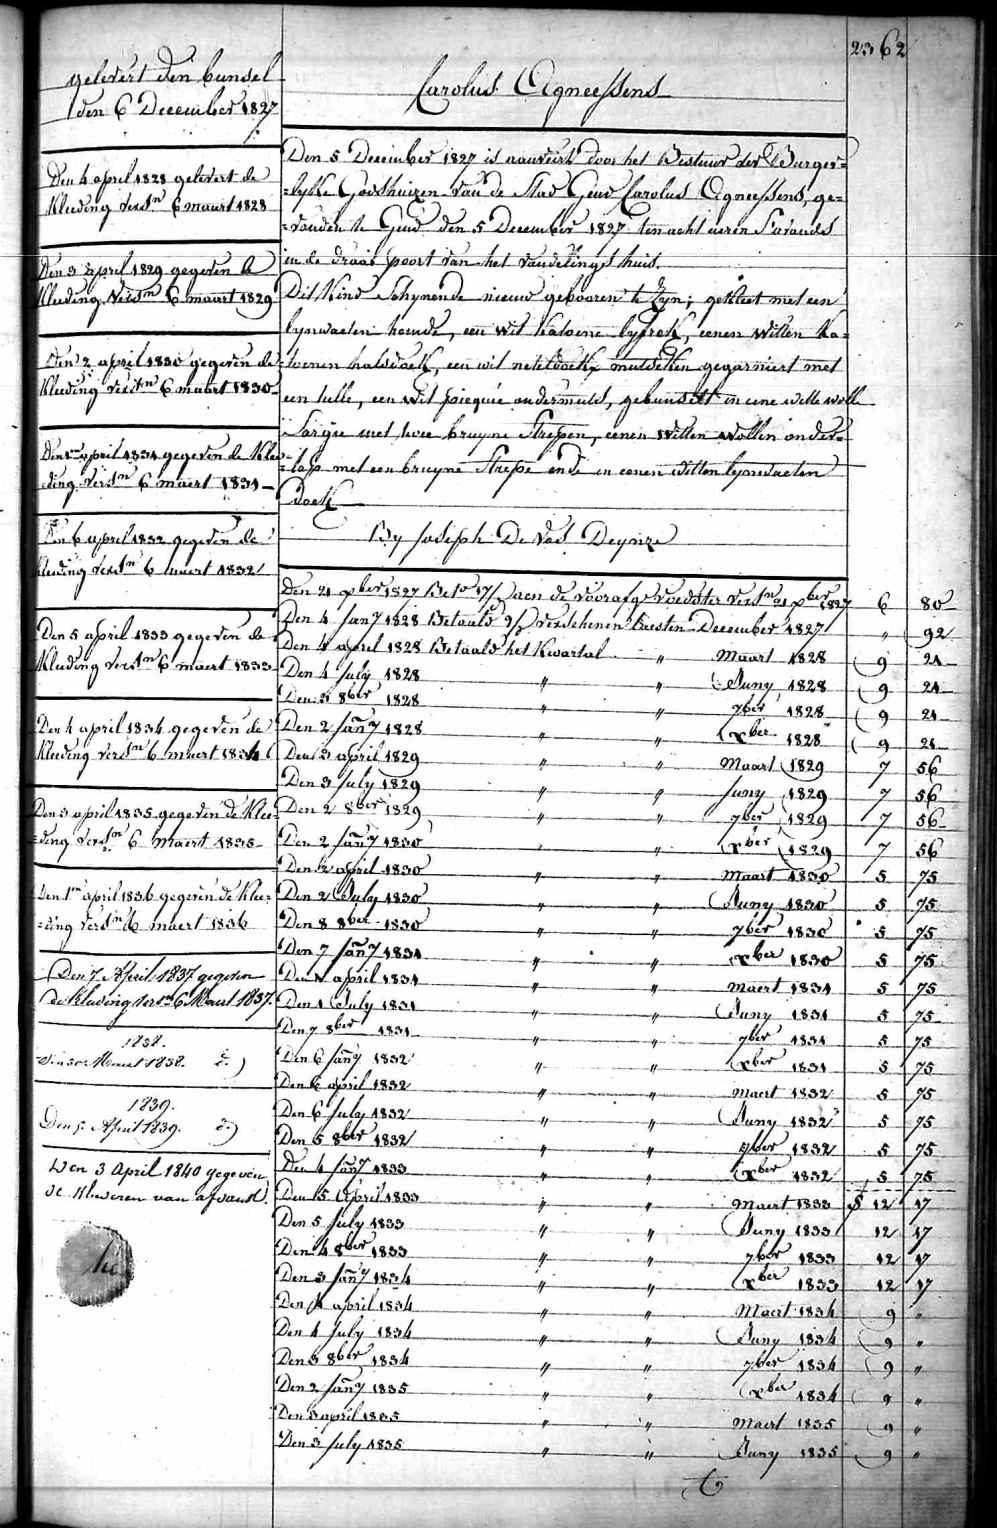 2362
Carolus Agneessens
gelevert den bunsel
den 6 December 1827
Den 4 april 1828 gelevert de
Kleeding versn 6 maart 1828
Den 3 april 1829 gegeven de
Kleeding Versn 6 maart 1829
Den 2 april 1830 gegeven de
Kleeding versn 6 maart 1830
Den 1n april 1831 gegeven de Klee
ding versn 6 maert 1831
Den 6 april 1832 gegeven de
Kleeding versn 6 maert 1832
Den 5 april 1833 gegeven de
Kleeding versn 6 maert 1833
Den 4 april 1834 gegeven de
Kleeding versn 6 maert 1834
Den 3 april 1835 gegeven de Klee-
=ding versn 6 maert 1835
Den 1n april 1836 gegeven de Klee=
=ding versn 6 maert 1836
Den 7 April 1837 gegeven
de Kleeding versn 6 Maert 1837.
1838.
Den 30 Maart 1838.
1839.
Den 5 April 1839.
Den 3 April 1840 gegeven
de Kleederen van
Den 5 December 1827 is aanveirt door het Bestuur der Burger=
=lyke Godshuizen van de Stad Gend Carolus Agneessens, ge=
=vonden te Gend den 5 December 1827 ten acht uren s'avonds
in de draai poort van het vondelings huis.
Dit Kind Schynende nieuw gebooren te zyn; gekleet met een
lynwaeten hemde, een wit katoene lyfrok, eenen witten ka=
=toenen halsdoek, een wit neteldoekx mutseken gegarniert met
een tulle, een wit piequé ondermuts, gebunselt in eene witte wolle
Sargie met twee bruyne Strepen, eenen witten wollen onder=
=lap met een bruyne Strepe ende in eenen witten lynwaeten
doek
By Joseph De Vos Deynze
Den 21 xber 1827 Beto 17/ aen de voorafge voedster versn 21 xber 1827 6 80
Den 4 Jany 1828 Betaald verschenen lasten December 1827 " 92
Den 4 april 1828 Betaald het Kwartal " Maart 1828 9 21
Den 4 July 1828 " " Juny 1828 9 21
Den 3 8ber 1828 " " 7ber 1828 9 21
Den 2 Jany 1828 " " xber 1828 9 21
Den 3 april 1829 " " Maart 1829 7 56
Den 3 July 1829 " " Juny 1829 7 56
Den 2 8ber 1829 " " 7ber 1829 7 56
Den 2 Jany 1830 " " xber 1829 7 56
Den 2 april 1830 " " Maart 1830 5 75
Den 2 July 1830 " " Juny 1830 5 75
Den 8 8ber 1830 " " 7ber 1830 5 75
Den 7 Jany 1831 " " xber 1830 5 75
Den 1 april 1831 " " maert 1831 5 75
Den 1 July 1831 " " Juny 1831 5 75
Den 7 8ber 1831 " " 7ber 1831 5 75
Den 6 Jany 1832 " " xber 1831 5 75
Den 6 april 1832 " " maert 1832 5 75
Den 6 July 1832 " " Juny 1832 5 75
Den 5 8ber 1832 " " 7ber 1832 5 75
Den 4 Jany 1833 " " xber 1832 5 75
Den 5 April 1833 " " maert 1833 12 17
Den 5 July 1833 " " Juny 1833 12 17
Den 4 8ber 1833 " " 7ber 1833 12 17
Den 3 Jany 1834 " " xber 1833 12 17
Den 4 april 1834 " " Maert 1834 9 "
Den 4 July 1834 " " Juny 1834 9 "
Den 3 8ber 1834 " " 7ber 1834 9 "
Den 2 Jany 1835 " " xber 1834 9 "
Den 3 april 1835 " " maert 1835 9 "
Den 3 July 1835 " " Juny 1835 9 "